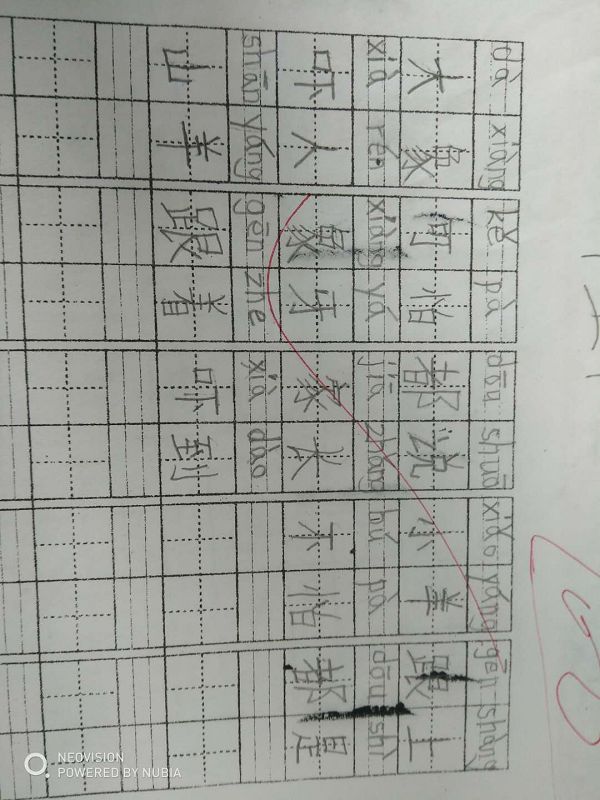 dà xiàng kě pà dōu shuō xiǎo yáng gēn shàng
大象 可怕 都说 小羊 跟上
xià rén xiàng yá jiā zhǎng bú pà dōu shì
吓人 象牙 家长 不怕 都是
shān yáng gēn zhe xià dào
山羊 跟着 吓到
NEOVISION
POWERED BY NUBIA